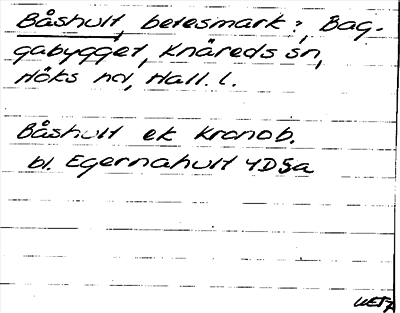 Båshult, betesmark:, Bag-
gabygget, Knäreds sn,
Höks hd, Hall. l.
Båshult ek Kronob.
bl. Egernahult 4D5a